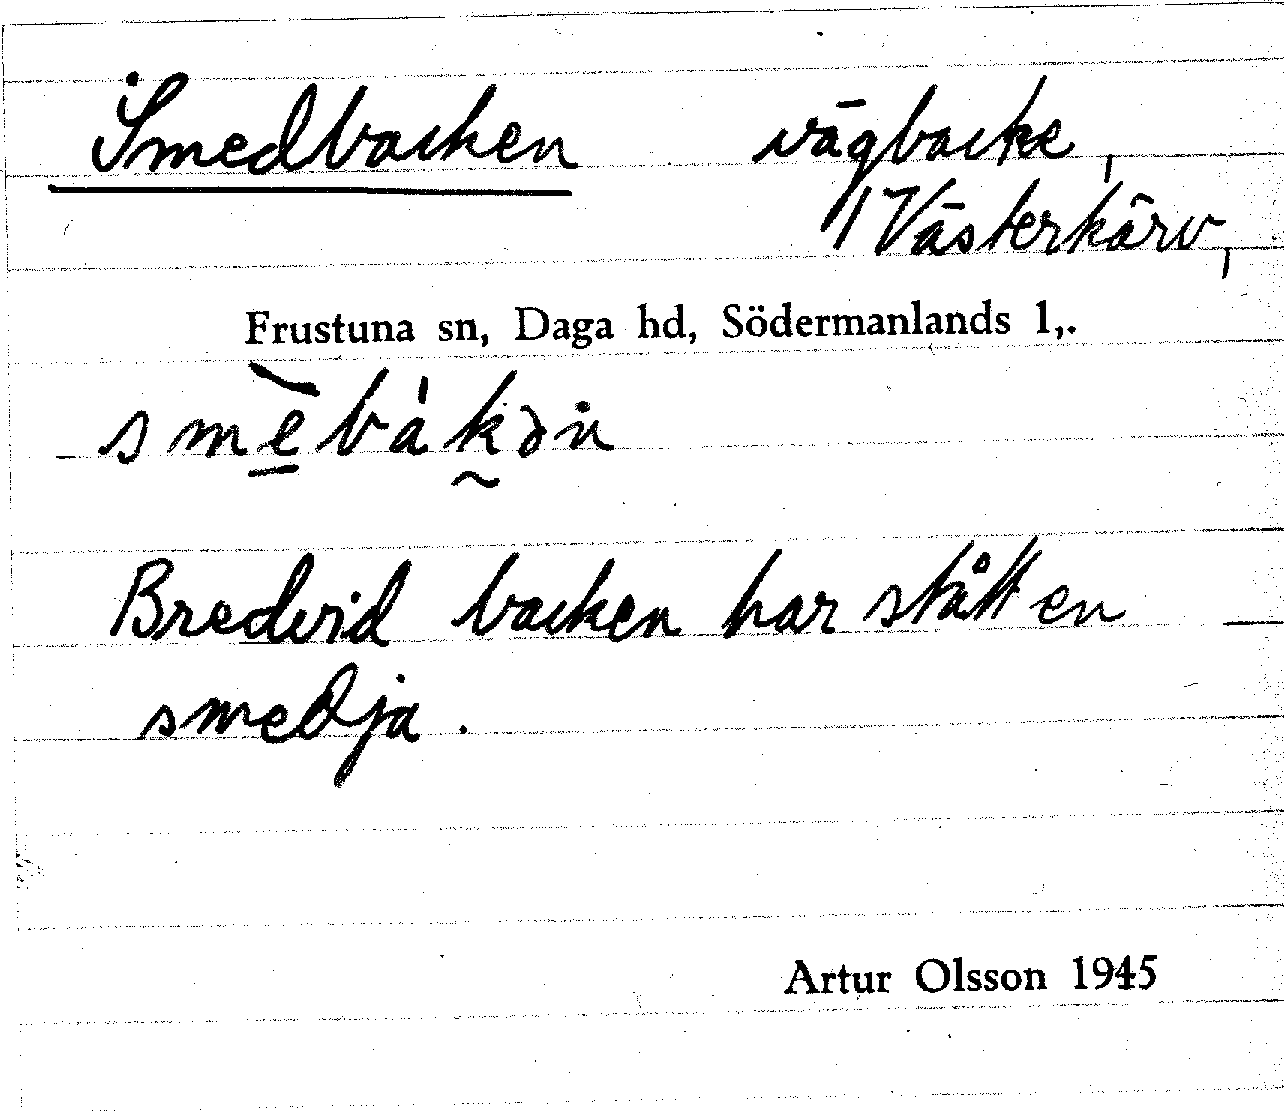 Smedbacken vägbacke,
// Västerkärv,
Frustuna sn, Daga hd, Södermanlands l,.
smèbàkən
Bredvid backen har stått en
smedja.
Artur Olsson 1945